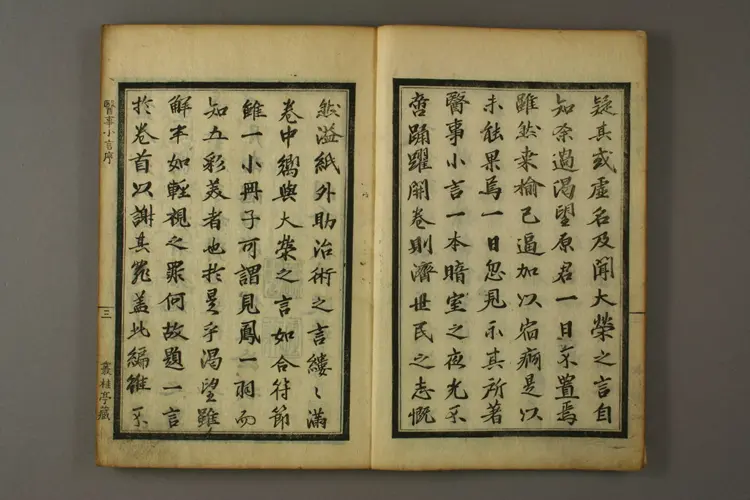 疑其或虚名及聞大榮之言自
知奈過渴望原君一日不置焉
雖然桑榆已逼加以宿痾是以
未能果焉一日忽見示其所著
醫事小言一本暗室之夜光不
啻踊躍開卷則濟世民之志慨
然溢紙外助治術之言縷〻滿
卷中嚮與大榮之言如合符節
雖一小冊子可謂見鳳一羽而
知五彩羙者也於是乎渴望雖
解半如輕視之罪何故題一言
於卷首以謝其罪盖此編雖不
醫事小言序
三
叢桂亭藏